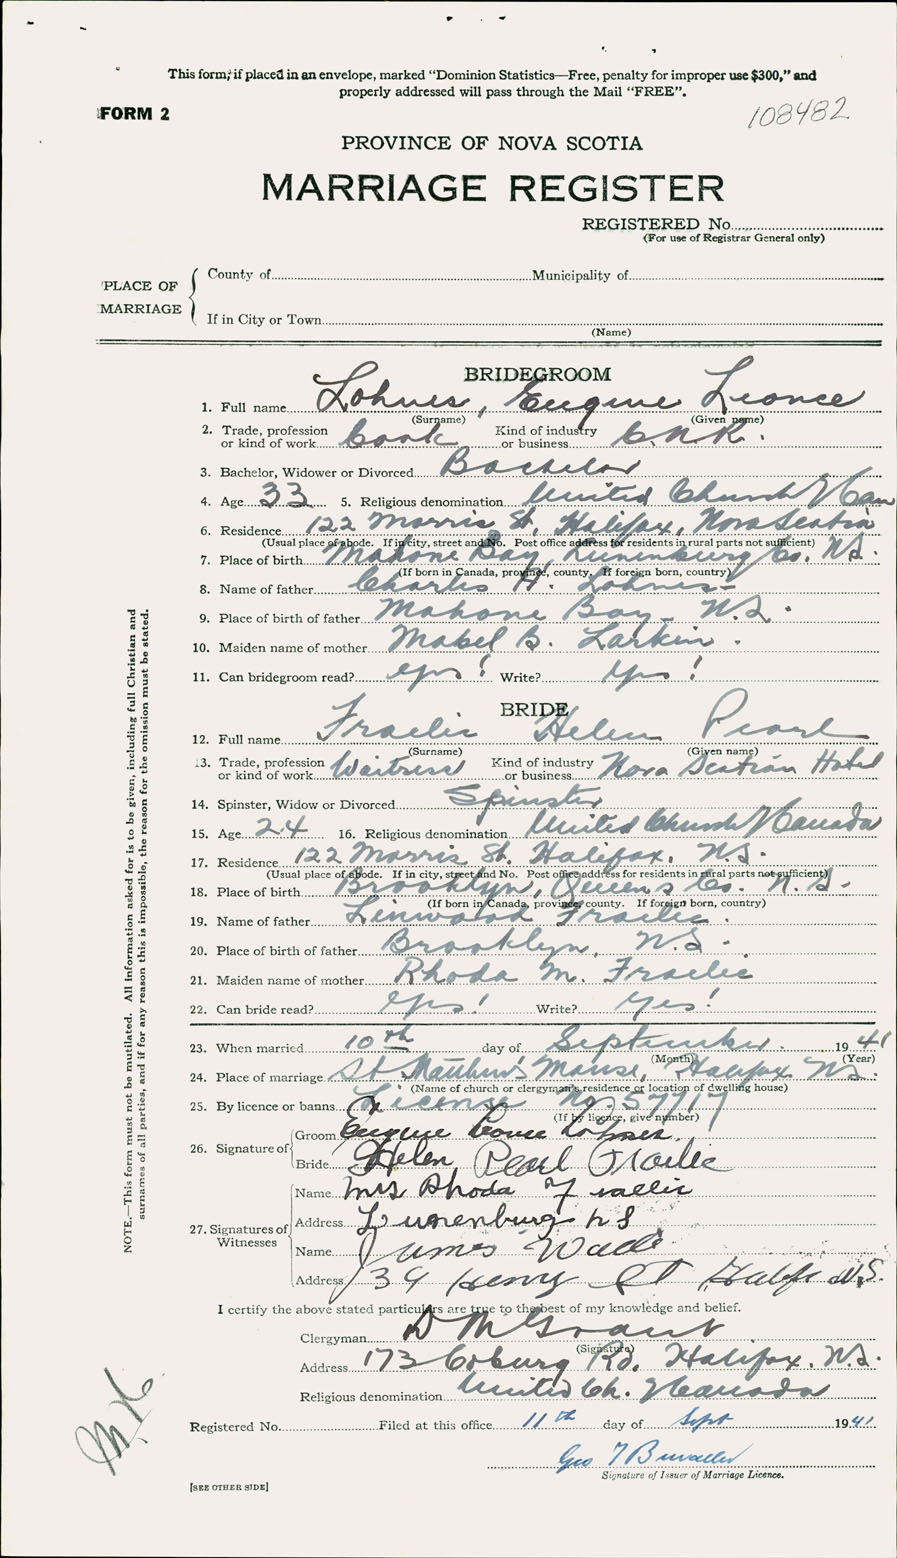 This form, if placed in an envelope, marked “Dominion Statistics—Free, penalty for improper use $300,” and
properly addressed will pass through the Mail “FREE”.
FORM 2
108482
PROVINCE OF NOVA SCOTIA
MARRIAGE REGISTER
REGISTERED No.
(For use of Registrar General only)
PLACE OF MARRIAGE
County of Municipality of
If in City or Town
(Name)
BRIDEGROOM
1. Full name Lohnes, Eugene Leonce
(Surname) (Given name)
2. Trade, profession or kind of work Cook Kind of industry or business C.N.R.
3. Bachelor, Widower or Divorced Bachelor
4. Age 33 5. Religious denomination United Church of Can
6. Residence 122 Morris St, Halifax, Nova Scotia
(Usual place of abode. If in city, street and No. Post office address for residents in rural parts not sufficient)
7. Place of birth Mahone Bay, Lunenburg Co. N.S.
(If born in Canada, province, county. If foreign born, country)
8. Name of father Charles H. Lohnes
9. Place of birth of father Mahone Bay N.S.
10. Maiden name of mother Mabel B. Larkin.
11. Can bridegroom read? Yes! Write? Yes!
BRIDE
12. Full name Fraelic Helen Pearl
(Surname) (Given name)
13. Trade, profession or kind of work Waitress Kind of industry or business Nova Scotian Hotel
14. Spinster, Widow or Divorced Spinster
15. Age 24 16. Religious denomination United Church of Canada
17. Residence 122 Morris St. Halifax, N.S.
(Usual place of abode. If in city, street and No. Post office address for residents in rural parts not sufficient)
18. Place of birth Brooklyn, Queens Co. N.S.
(If born in Canada, province, county. If foreign born, country)
19. Name of father Linwood Fraelic.
20. Place of birth of father Brooklyn, N.S.
21. Maiden name of mother Rhoda M. Fraelic
22. Can bride read? Yes! Write? Yes!
23. When married 10th day of September. 1941
(Month) (Year)
24. Place of marriage St Matthew's Manse, Halifax N.S.
(Name of church or clergyman's residence or location of dwelling house)
25. By licence or banns License No. 57717
(If by licence, give number)
26. Signature of
Groom Eugene Lohnes.
Bride Helen Pearl Fraelic
27. Signatures of Witnesses
Name Mrs Rhoda Fraelic
Address Lunenburg N S
Name James Wade
Address 39 Henry St Halifx N.S.
I certify the above stated particulars are true to the best of my knowledge and belief.
Clergyman D M Grant
(Signature)
Address 173 Coburg Rd. Halifax. N.S.
Religious denomination United Ch. of Canada
Registered No. Filed at this office 11th day of Sept 1941
Geo
Signature of Issuer of Marriage Licence.
[SEE OTHER SIDE]
NOTE.—This form must not be mutilated. All information asked for is to be given, including full Christian and
surnames of all parties, and if for any reason this is impossible, the reason for the omission must be stated.